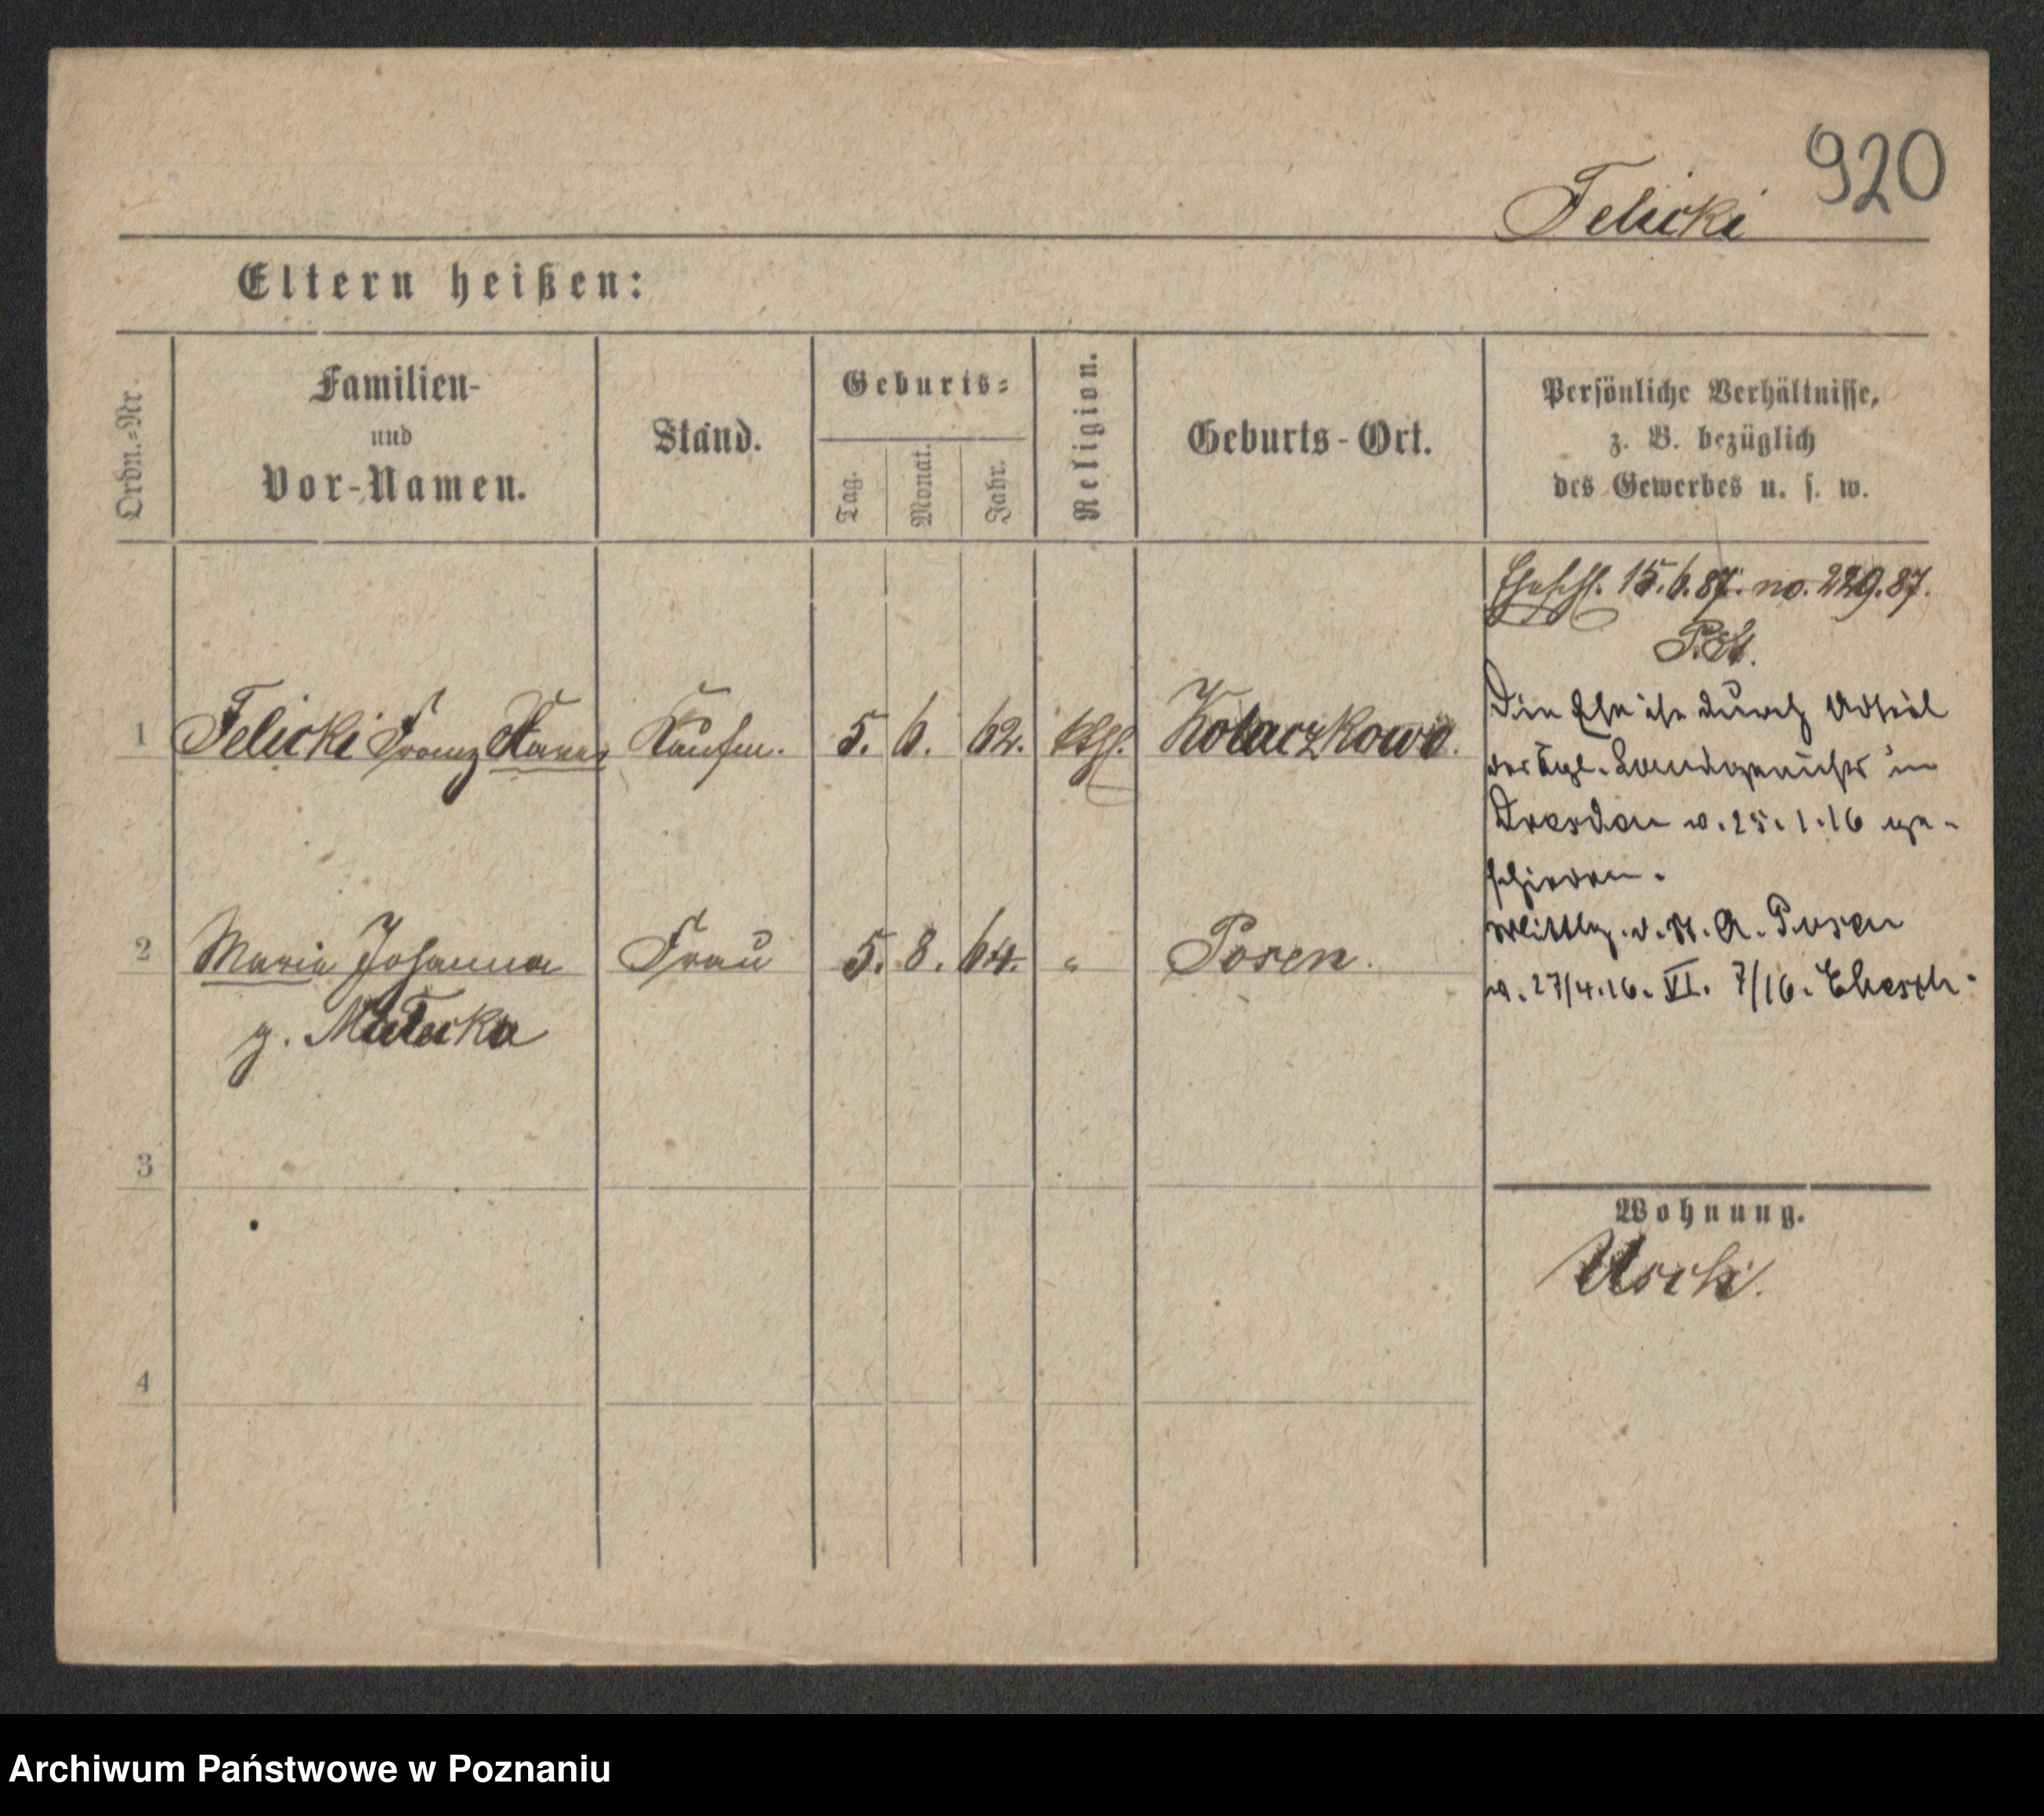 920
Felicki
Eltern heißen:
Ordn.-Nr
Familien-
und
Vor-Namen.
Stand.
Geburts-
Tag.
Monat.
Jahr.
Religion.
Geburts-Ort.
Persönliche Verhältnisse,
z. B. bezüglich
des Gewerbes u. s. w.
Eheschl. 15.6.87. no. 229.87.
P. St.
1 Felicki Franz Kaufm. 5. 6. 62. kth. Kolaczkowo.
Die Ehe ist durch Urteil
des Kgl. Landgerichts in
Dresden v. 25.1.16 ge-
schieden.
Mittlg. d. St. A. Posen
v. 27/4.16. VI. 7/16. Ehesch.
2 Maria Johanna Frau 5. 8. 64. " Posen.
g.
3
Wohnung.
4
Archiwum Państwowe w Poznaniu